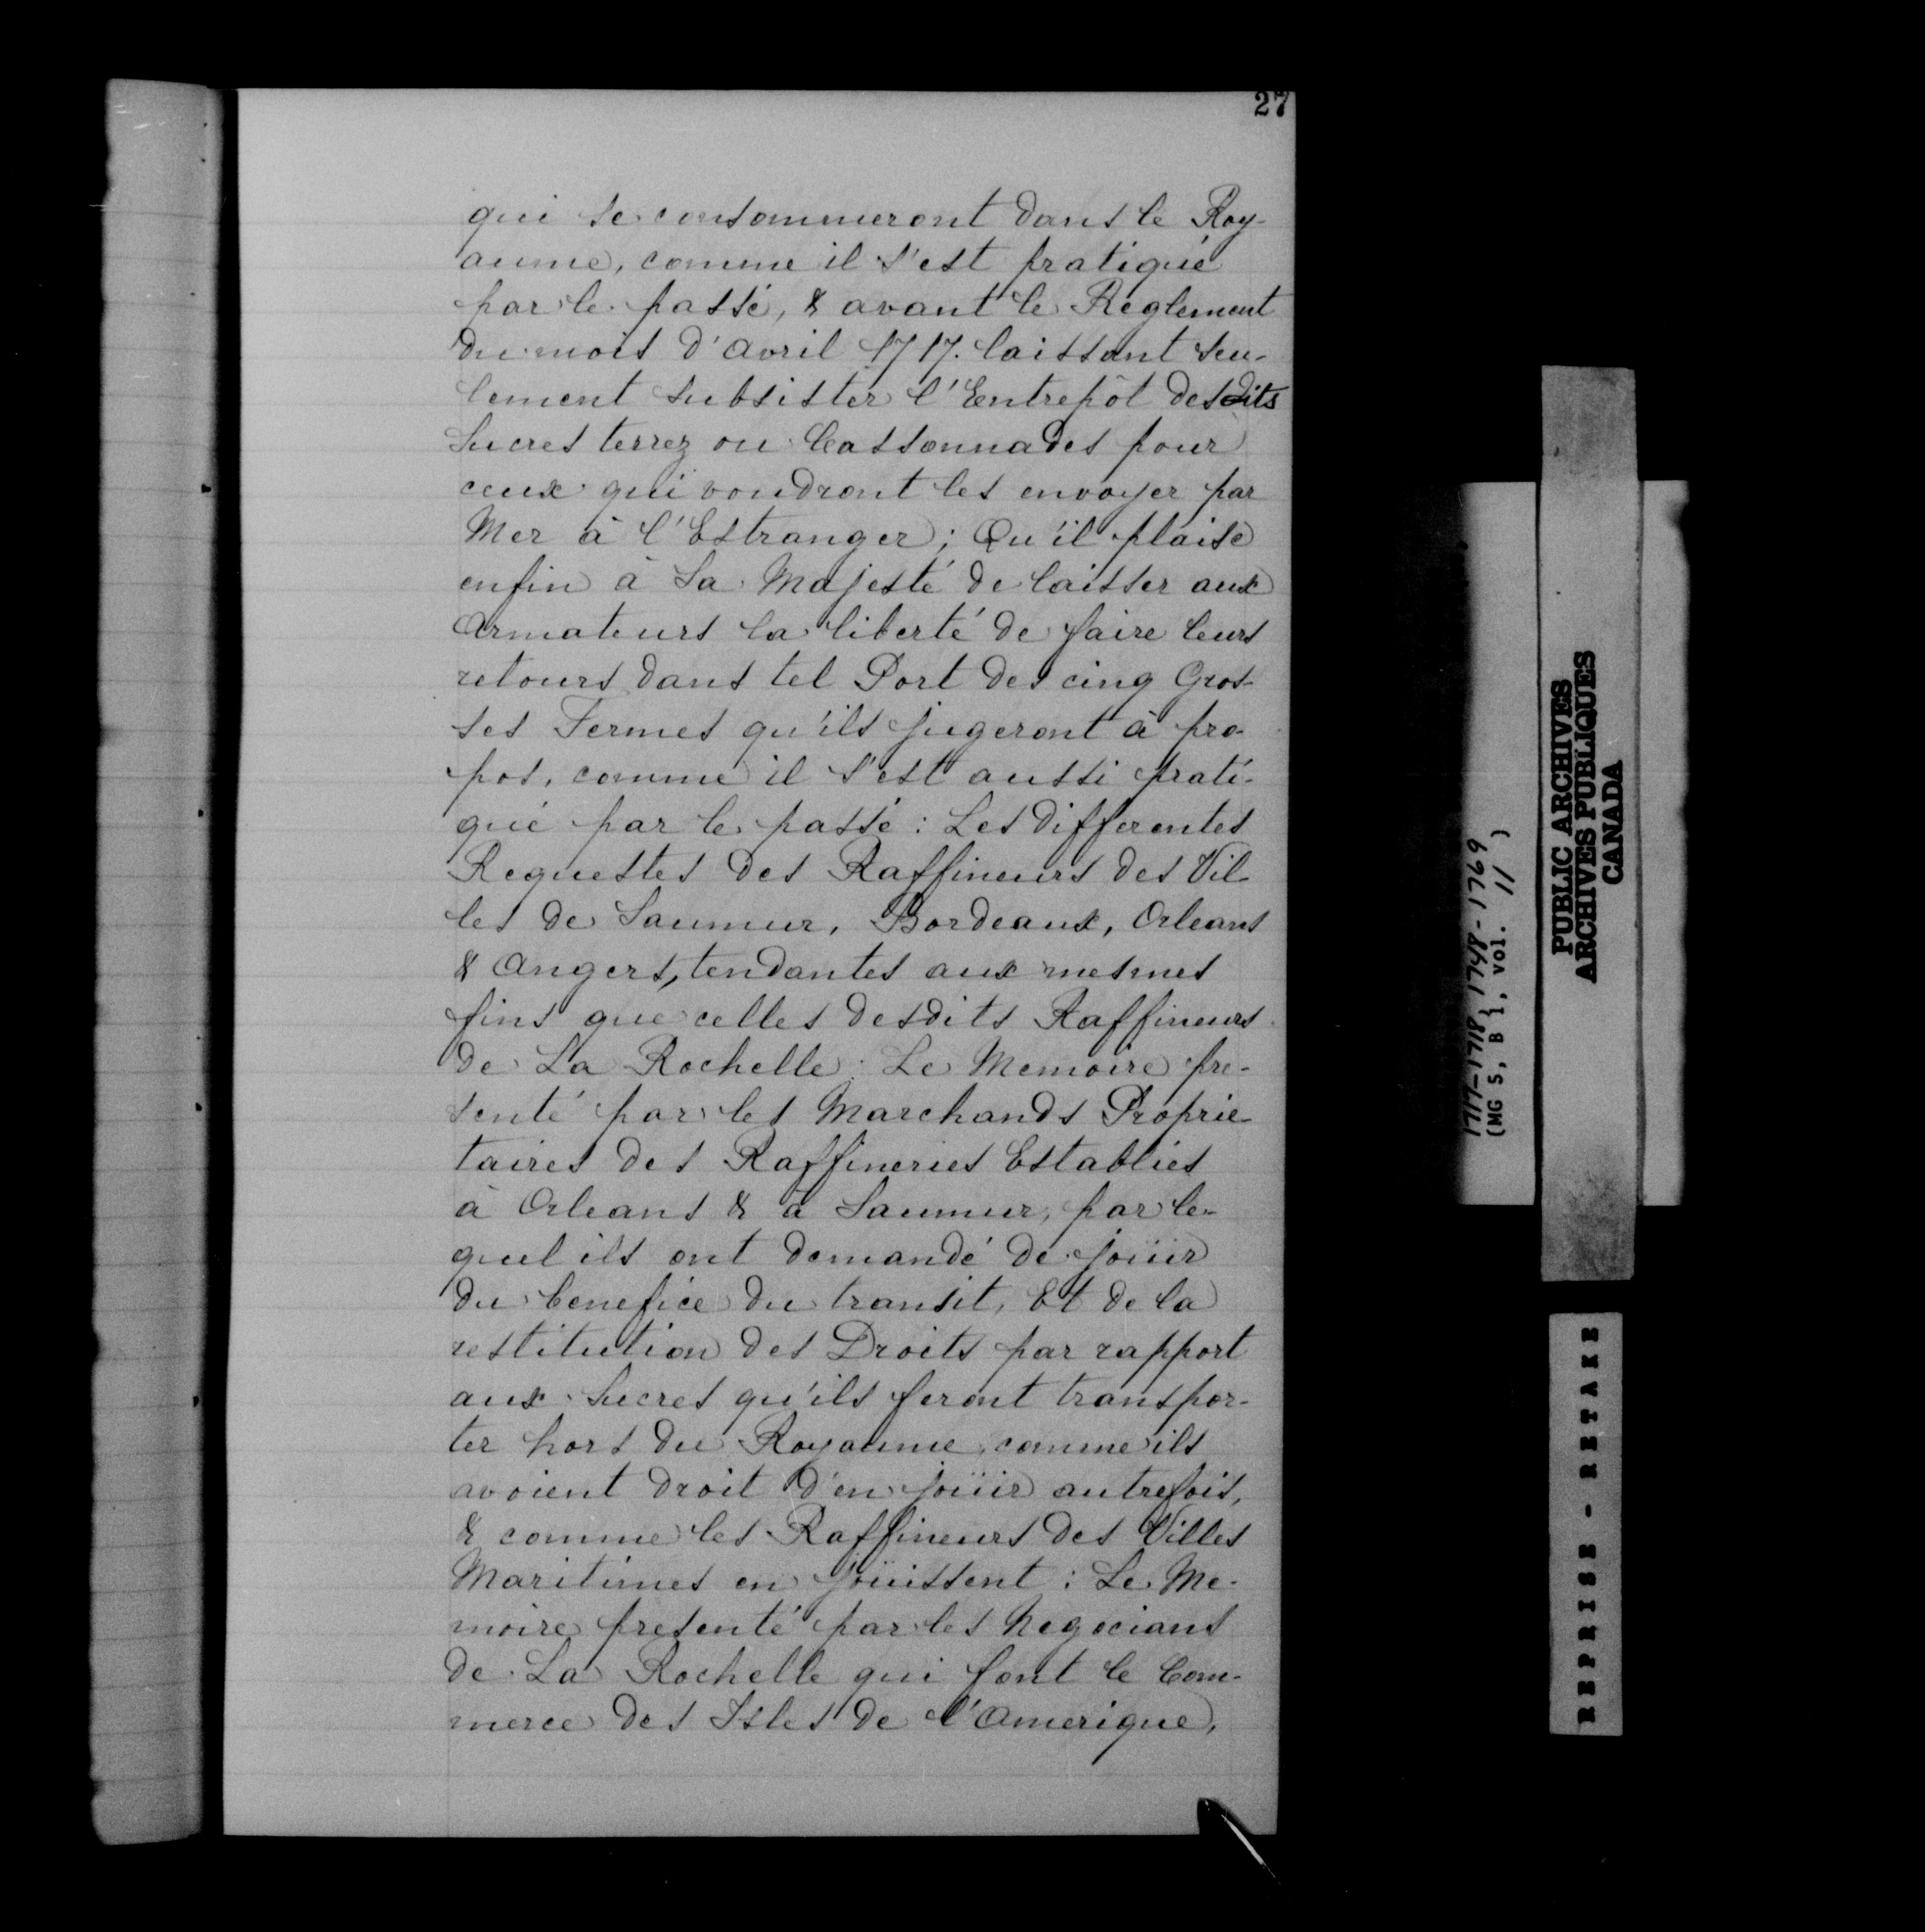 27
qui se consommeront dans le Roy-
aume, comme il s'est pratiqué
par le passé, & avant le Reglement
du mois d'avril 1717. laissant seu-
lement subsister l'Entrepôt desdits
Sucres terrez ou Cassonnades pour
ceux qui voudront les envoyer par
Mer à l'Estranger; Qu'il plaise
enfin à Sa Majesté de laisser aux
Armateurs la liberté de faire leurs
retours dans tel Port des cinq Gros-
ses Fermes qu'ils jugeront à pro-
pos, comme il s'est aussi prati-
qué par le passé : Les differentes
Requestes des Raffineurs des Vil-
les de Saumur, Bordeaux, Orleans
& Angers, tendantes aux mesmes
fins que celles desdits Raffineurs
de La Rochelle : Le Memoire pre-
senté par les Marchands Proprie-
taires des Raffineries Establies
à Orleans & à Saumur, par le-
quel ils ont demandé de joüir
du benefice du transit, Et de la
restitution des Droits par rapport
aux Sucres qu'ils feront transpor-
ter hors du Royaume, comme ils
avoient droit d'en joüir autrefois,
& comme les Raffineurs des Villes
Maritimes en joüissent : Le Me-
moire presenté par les Negocians
de La Rochelle qui font le Com-
merce des Isles de l'Amerique,
1717-1718, 1748-1769
(MG 5, B 1, vol. 11 )
PUBLIC ARCHIVES
ARCHIVES PUBLIQUES
CANADA
REPRISE - RETAKE